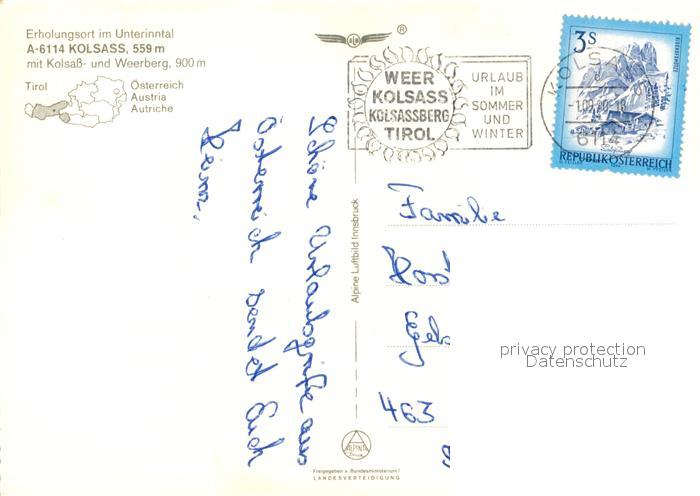 Erholungsort im Unterinntal
A-6114 KOLSASS, 559 m
mit Kolsaß- und Weerberg, 900 m
Tirol
Österreich
Austria
Autriche
ALPINE
®
WEER
KOLSASS
KOLSASSBERG
TIROL
URLAUB
IM
SOMMER
UND
WINTER
KOLSA
-1.09.80-18
6114
3S
REPUBLIK ÖSTERREICH
Schöne Urlaubsgrüße aus
Österreich sendet Euch
Alpine Luftbild Innsbruck
Familie
Hors
Egel
463
privacy protection
Datenschutz
ALPINE
Freigegeben v. Bundesministerium f.
LANDESVERTEIDIGUNG